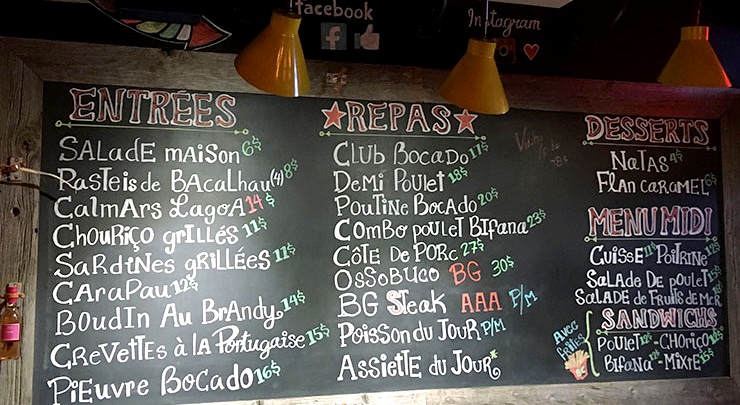 facebook
Instagram
ENTRÉES
SALADE MAISON 6$
Rasteis de BACALHAU (4) 8$
CALMARS LAGOA 14$
CHOURIÇO GRILLÉS 11$
SARDINES GRILLÉES 11$
CARAPAU 12$
BOUDIN AU BRANDY 14$
CREVETTES à LA Portugaise 15$
PIEUVRE BOCADO 16$
REPAS
CLUB BOCADO 17$
DEMI POULET 18$
POUTINE BOCADO 20$
COMBO POULET BIFANA 23$
CÔTE DE PORC 27$
OSSOBUCO BG 30$
BG STEAK AAA P/M
POISSON DU JOUR P/M
ASSIETTE DU JOUR*
DESSERTS
NATAS
FLAN CARAMEL
MENU MIDI
CUISSE 11$ POITRINE
SALADE DE POULET 15$
SALADE DE FRUITS DE MER
SANDWICHS
AVEC frites
POULET - CHORIÇO
BIFANA - MIXTE 15$